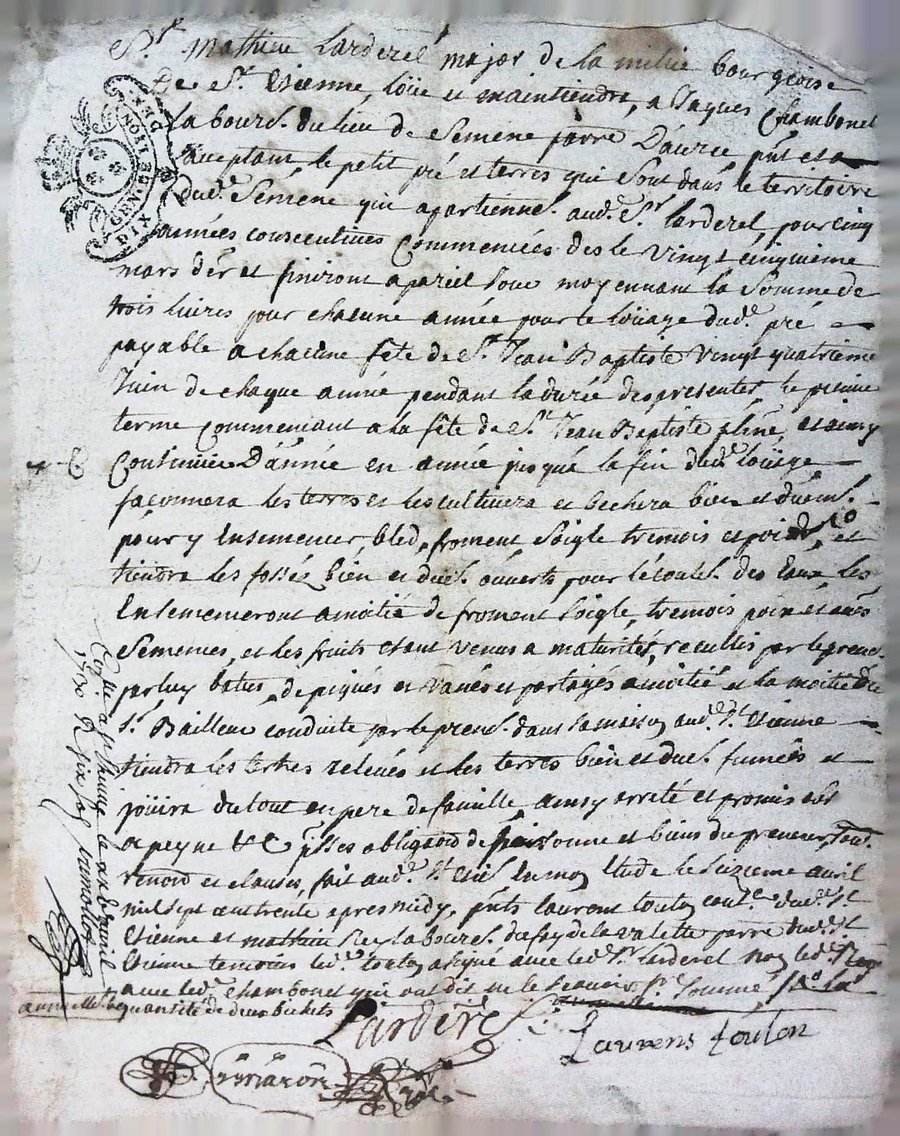 Sr. Mathieu Larderel major de la milice bourgeoise
De St. Etienne, loüe et maintiendra, a Jaques Chambonet
Labour. du lieu de Semene parre D'aurec, pnt et a
acceptant, le petit pré et terres qui Sont dans le territoire
dud. Semene qui apartienne. aud. Sr. larderel, pour cinq
années consecutives Commencées des le vingt cinquieme
mars der et finiront a pareil Jour moyennant la Somme de
trois livres pour chacune année pour le loüage dud. pré
payable a chacune fête de St. Jean Baptiste vingt quatrieme
Juin de chaque année pendant la durée des presentes, le premier
terme commencant a la fête de St. Jean Baptiste pchne, et ainsy
Continuer D'année en année jusqu'a la fin dud. loüage
façonnera les terres et les cultivera et bechera bien et duem.
pour y Ensemencer, bled, froment Soigle tremois et poids, et
tiendra les fossés bien et duem. ouverts pour l'écoulem. des Eaux, les
Ensemenceront a moitié de froment Soigle, tremois poix et autres
Semences, et les fruits etant venus a maturité, recullis par le preneur
par luy batus, depiqués et vanés et partagés a moitié et la moitié du
Sr. Bailleur conduite par le preneur. dans sa maison aud. St. Etienne
tiendra les terres relevées et les terres bien et duem. fumées et
joüira du tout en pere de famille ainsy arreté et promis
a peyne &C obligaon de personne et biens du preneur,
renon et clauses, fait aud. St. Etie. En mon Etude le Seizieme avril
mil sept cent trente apres midy, pnts laurent touton dud. St.
Etienne et mathieu Rey laboure. du fay de la valette parre dud. St.
Etienne temoins led. touton a signé avec led. Sr. larderel non led. Rey
avec led. chambonet qui ont dit ne le Scavoir Sr. Sommé,
annuelle quantité de deux bichets
Larderel
Laurens touton
GEN DE LION
DIX DEN
Conlle a St. Etienne le avril
1730 R. dix sols